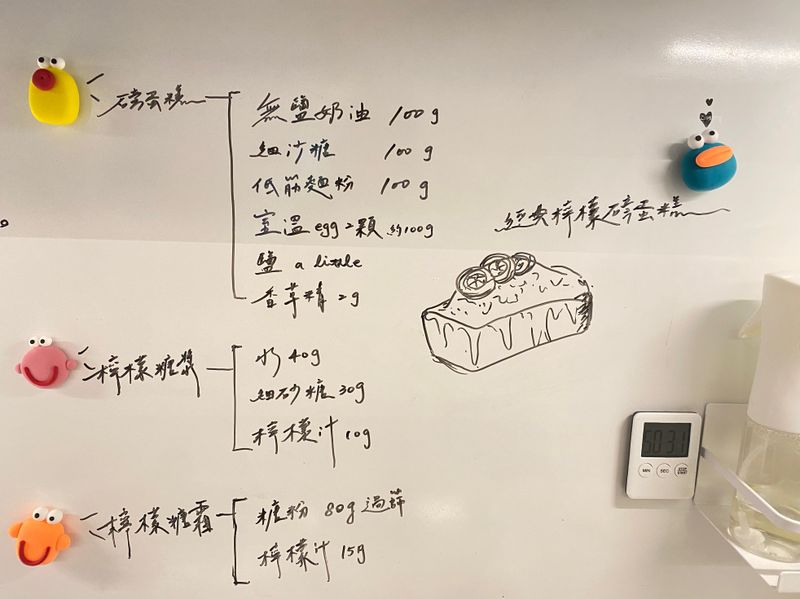 磅蛋糕
無鹽奶油 100g
細沙糖 100g
低筋麵粉 100g
室溫egg 2顆 約100g
鹽 a little
香草精 2g
經典檸檬磅蛋糕
檸檬糖漿
水 40g
細砂糖 30g
檸檬汁 10g
檸檬糖霜
糖粉 80g 過篩
檸檬汁 15g
MIN
SEC
START